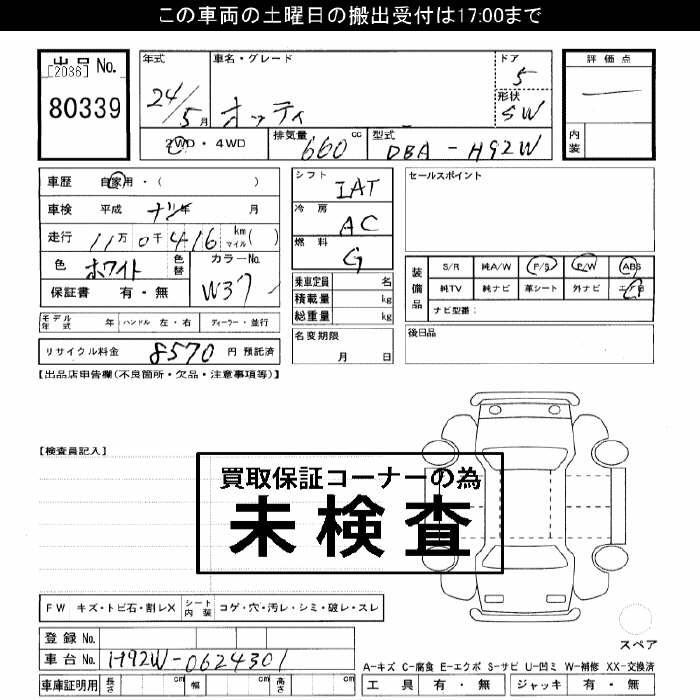 この車両の土曜日の搬出受付は17:00まで
出品 No.
[2036]
80339
年式
24/5月
車名・グレード
オッティ
ドア
5
形状
SW
2WD・4WD
排気量
660 cc
型式
DBA-H92W
評価点
内装
車歴 自家用・( )
車検 平成 ナシ年 月
走行 11万0千416 km マイル( )
色 ホワイト
色替
カラーNo.
W37
保証書 有・無
モデル年式 年
ハンドル 左・右
ディーラー・並行
リサイクル料金 8570 円 預託済
シフト
IAT
冷房
AC
燃料
G
乗車定員 名
積載量 kg
総重量 kg
名変期限
月 日
セールスポイント
装備品
S/R 純A/W P/S P/W ABS
純TV 純ナビ 革シート 外ナビ
ナビ型番:
後日品
【出品店申告欄(不良箇所・欠品・注意事項等)】
【検査員記入】
買取保証コーナーの為
未検査
FW キズ・トビ石・割レX
シート内装
コゲ・穴・汚レ・シミ・破レ・スレ
登録 No.
車台 No. H92W-0624301
車庫証明用 長さ cm 幅 cm 高さ cm
スペア
A-キズ C-腐食 E-エクボ S-サビ U-凹ミ W-補修 XX-交換済
工具 有・無 ジャッキ 有・無